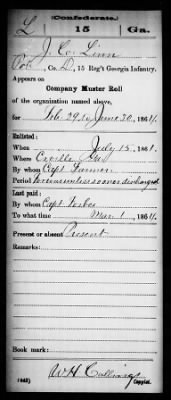 (Confederate.)
L 15 Ga.
J. C. Linn
Pvt., Co. D, 15 Reg't Georgia Infantry.
Appears on
Company Muster Roll
of the organization named above,
for Feb. 29 to June 30, 1864
Enlisted:
When July 15, 1861.
Where Ga
By whom Capt Farmer
Period
Last paid:
By whom Capt Forbes
To what time Mar 1, 1864.
Present or absent Present
Remarks:
Book mark:
W H Collings
(642) Copyist.